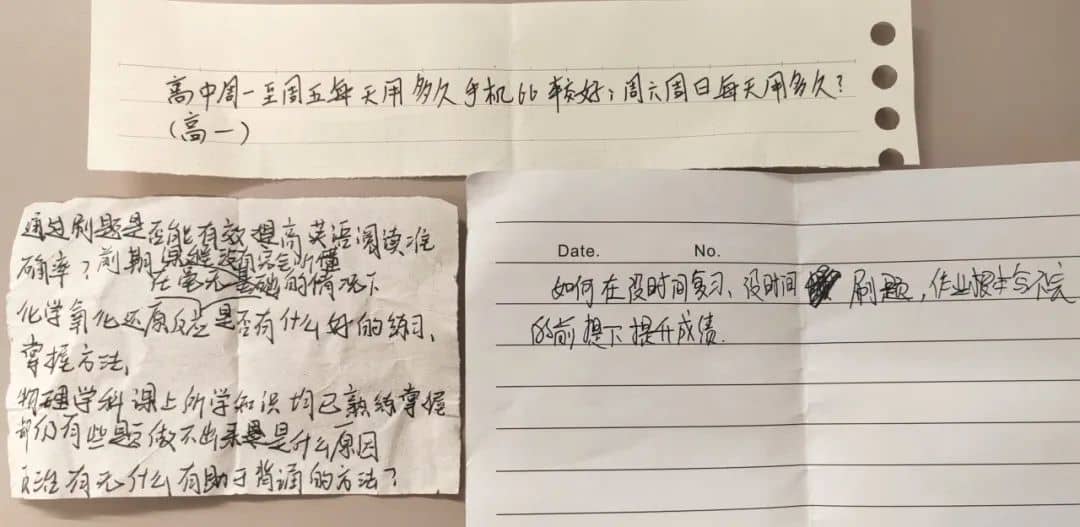 高中周一至周五每天用多久手机比较好,周六周日每天用多久?
(高一)
通过刷题是否能有效提高英语阅读准
确率?前期课堂没有完全听懂
在毫无基础的情况下
化学氧化还原反应是否有什么好的练习、
掌握方法、
物理学科课上所学知识均已熟练掌握
却仍有些题做不出来是什么原因
政治有无什么有助于背诵的方法?
Date. No.
如何在没时间复习、没时间刷题,作业根本写不完
的前提下提升成绩.